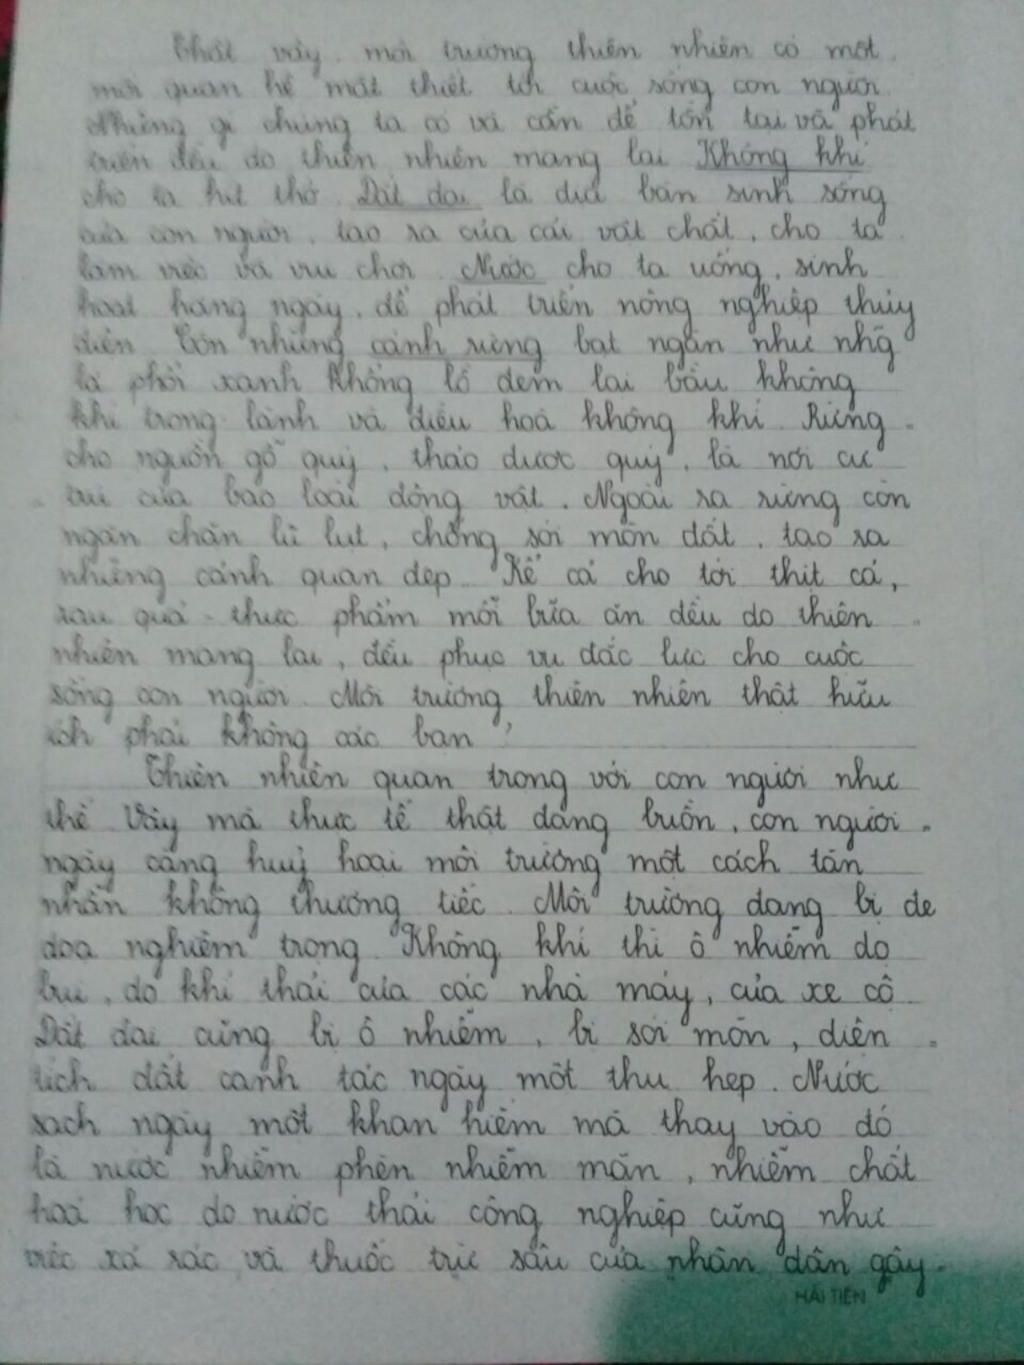 Thật vậy, môi trường thiên nhiên có một
mối quan hệ mật thiết tới cuộc sống con người.
Những gì chúng ta có và cần để tồn tại và phát
triển đều do thiên nhiên mang lại. Không khí
cho ta hít thở. Đất đai là địa bàn sinh sống
của con người, tạo ra của cải vật chất, cho ta
làm việc và vui chơi. Nước cho ta uống, sinh
hoạt hàng ngày, để phát triển nông nghiệp thủy
điện. Còn những cánh rừng bạt ngàn như nhg
lá phổi xanh khổng lồ đem lại bầu không
khí trong lành và điều hoà không khí. Rừng
cho nguồn gỗ quý, thảo dược quý, là nơi cư
trú của bao loài động vật. Ngoài ra rừng còn
ngăn chặn lũ lụt, chống sói mòn đất, tạo ra
những cảnh quan đẹp. Kể cả cho tới thịt cá,
rau quả - thực phẩm mỗi bữa ăn đều do thiên
nhiên mang lại, đều phục vụ đắc lực cho cuộc
sống con người. Môi trường thiên nhiên thật hữu
ích phải không các bạn?
Thiên nhiên quan trọng với con người như
thế. Vậy mà thực tế thật đáng buồn, con người
ngày càng huỷ hoại môi trường một cách tàn
nhẫn không thương tiếc. Môi trường đang bị đe
doạ nghiêm trọng. Không khí thì ô nhiễm do
bụi, do khí thải của các nhà máy, của xe cộ.
Đất đai cũng bị ô nhiễm, bị sói mòn, diện
tích đất canh tác ngày một thu hẹp. Nước
sạch ngày một khan hiếm mà thay vào đó
là nước nhiễm phèn nhiễm mặn, nhiễm chất
hoá học do nước thải công nghiệp cũng như
việc xả rác và thuốc trừ sâu của nhân dân gây
HẢI TIẾN